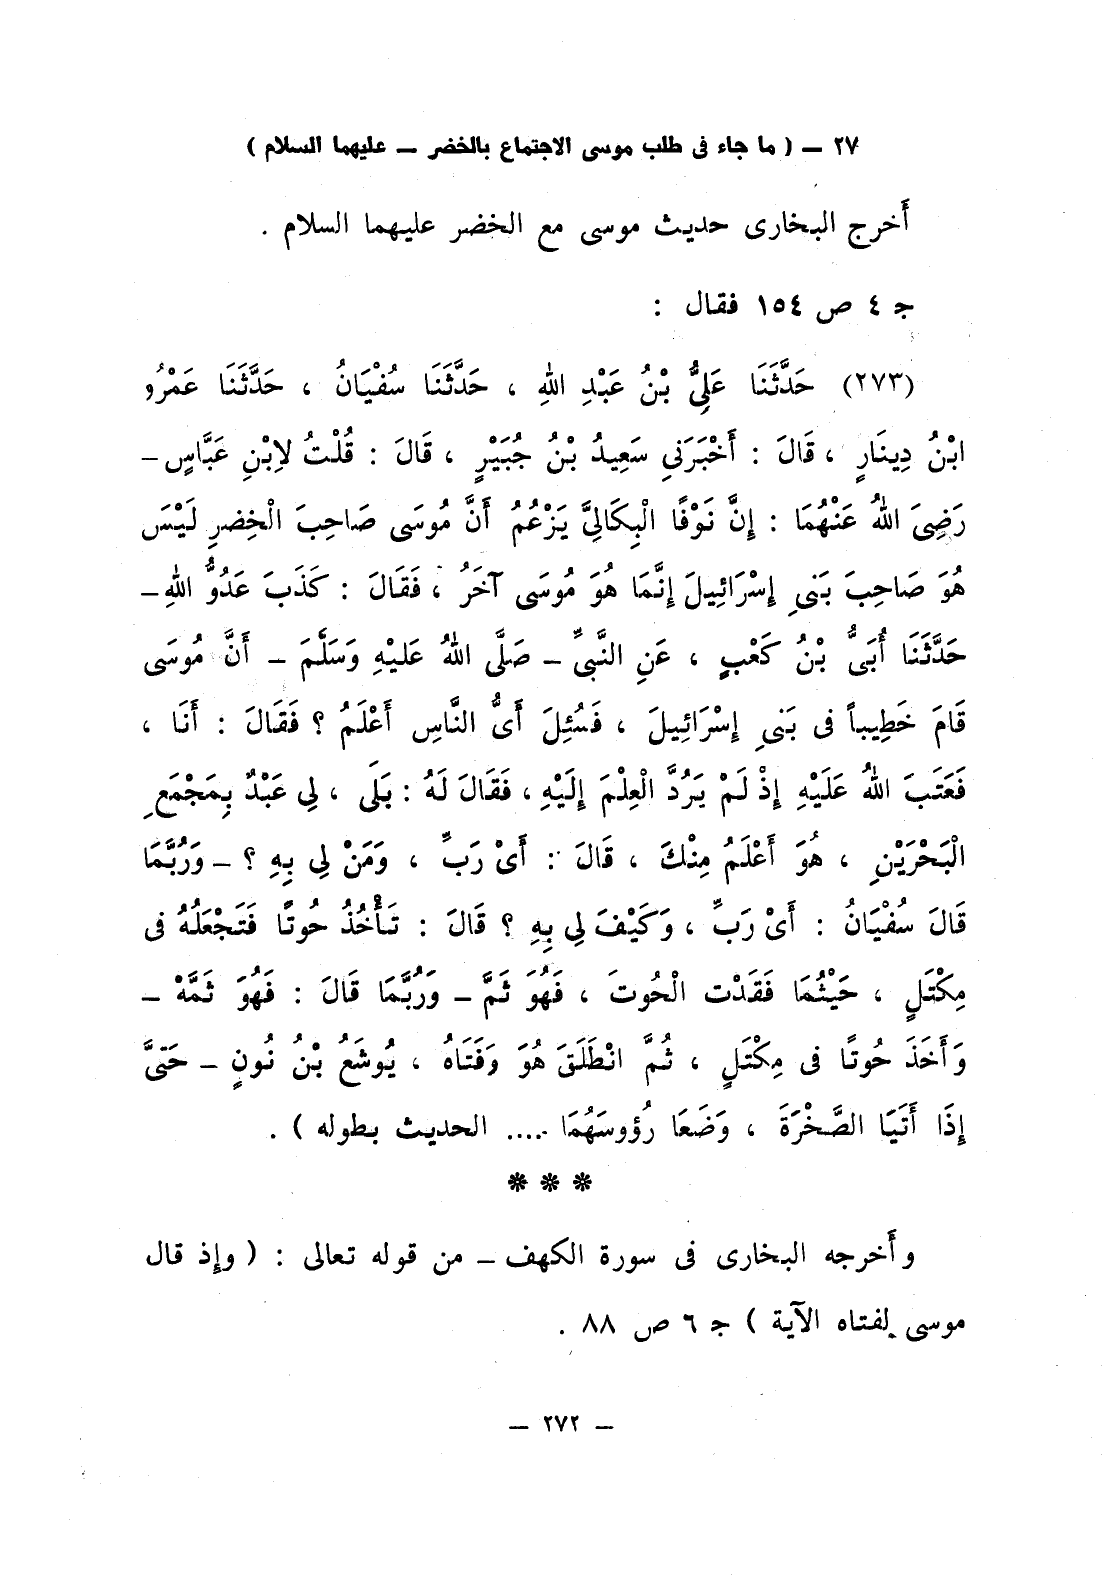 ٢٧ – ( ما جاء فى طلب موسى الاجتماع بالخضر – عليهما السلام )
أَخرج البخارى حديث موسى مع الخضر عليهما السلام .
جـ ٤ ص ١٥٤ فقال :
(٢٧٣) حَدَّثَنَا عَلِىُّ بْنُ عَبْدِ اللهِ ، حَدَّثَنَا سُفْيَانُ ، حَدَّثَنَا عَمْرُو
ابْنُ دِينَارٍ ، قَالَ : أَخْبَرَنِى سَعِيدُ بْنُ جُبَيْرٍ ، قَالَ : قُلْتُ لاِبْنِ عَبَّاسٍ –
رَضِىَ اللهُ عَنْهُمَا : إِنَّ نَوْفًا الْبِكَالِىَّ يَزْعُمُ أَنَّ مُوسَى صَاحِبَ الْخِضرِ لَيْسَ
هُوَ صَاحِبَ بَنِى إِسْرَائِيلَ إِنَّمَا هُوَ مُوسَى آخَرُ ، فَقَالَ : كَذَبَ عَدُوُّ اللهِ –
حَدَّثَنَا أُبَىُّ بْنُ كَعْبٍ ، عَنِ النَّبِىِّ – صَلَّى اللهُ عَلَيْهِ وَسَلَّمَ – أَنَّ مُوسَى
قَامَ خَطِيباً فى بَنِى إِسْرَائِيلَ ، فَسُئِلَ أَىُّ النَّاسِ أَعْلَمُ ؟ فَقَالَ : أَنَا ،
فَعَتَبَ اللهُ عَلَيْهِ إِذْ لَمْ يَرُدَّ الْعِلْمَ إِلَيْهِ ، فَقَالَ لَهُ : بَلَى ، لِى عَبْدٌ بِمَجْمَعِ
الْبَحْرَيْنِ ، هُوَ أَعْلَمُ مِنْكَ ، قَالَ : أَىْ رَبِّ ، وَمَنْ لِى بِهِ ؟ – وَرُبَّمَا
قَالَ سُفْيَانُ : أَىْ رَبِّ ، وَكَيْفَ لِى بِهِ ؟ قَالَ : تَأْخُذُ حُوتًا فَتَجْعَلُهُ فى
مِكْتَلٍ ، حَيْثُمَا فَقَدْت الْحُوتَ ، فَهُوَ ثَمَّ – وَرُبَّمَا قَالَ : فَهُوَ ثَمَّهْ –
وَأَخَذَ حُوتًا فى مِكْتَلٍ ، ثُمَّ انْطَلَقَ هُوَ وَفَتَاهُ ، يُوشَعُ بْنُ نُونٍ – حَتَّى
إِذَا أَتَيَا الصَّخْرَةَ ، وَضَعَا رُؤُوسَهُمَا .... الحديث بطوله ) .
* * *
وأَخرجه البخارى فى سورة الكهف – من قوله تعالى : ( وإِذ قال
موسى لفتاه الآية ) جـ ٦ ص ٨٨ .
– ٢٧٢ –